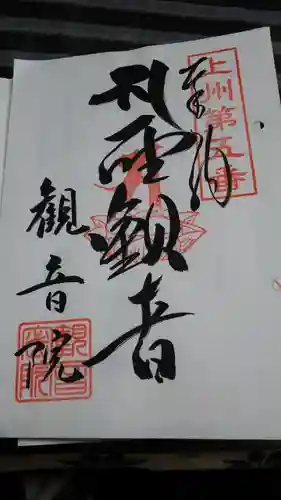 上州第五番
奉拝
聖観音
観音院